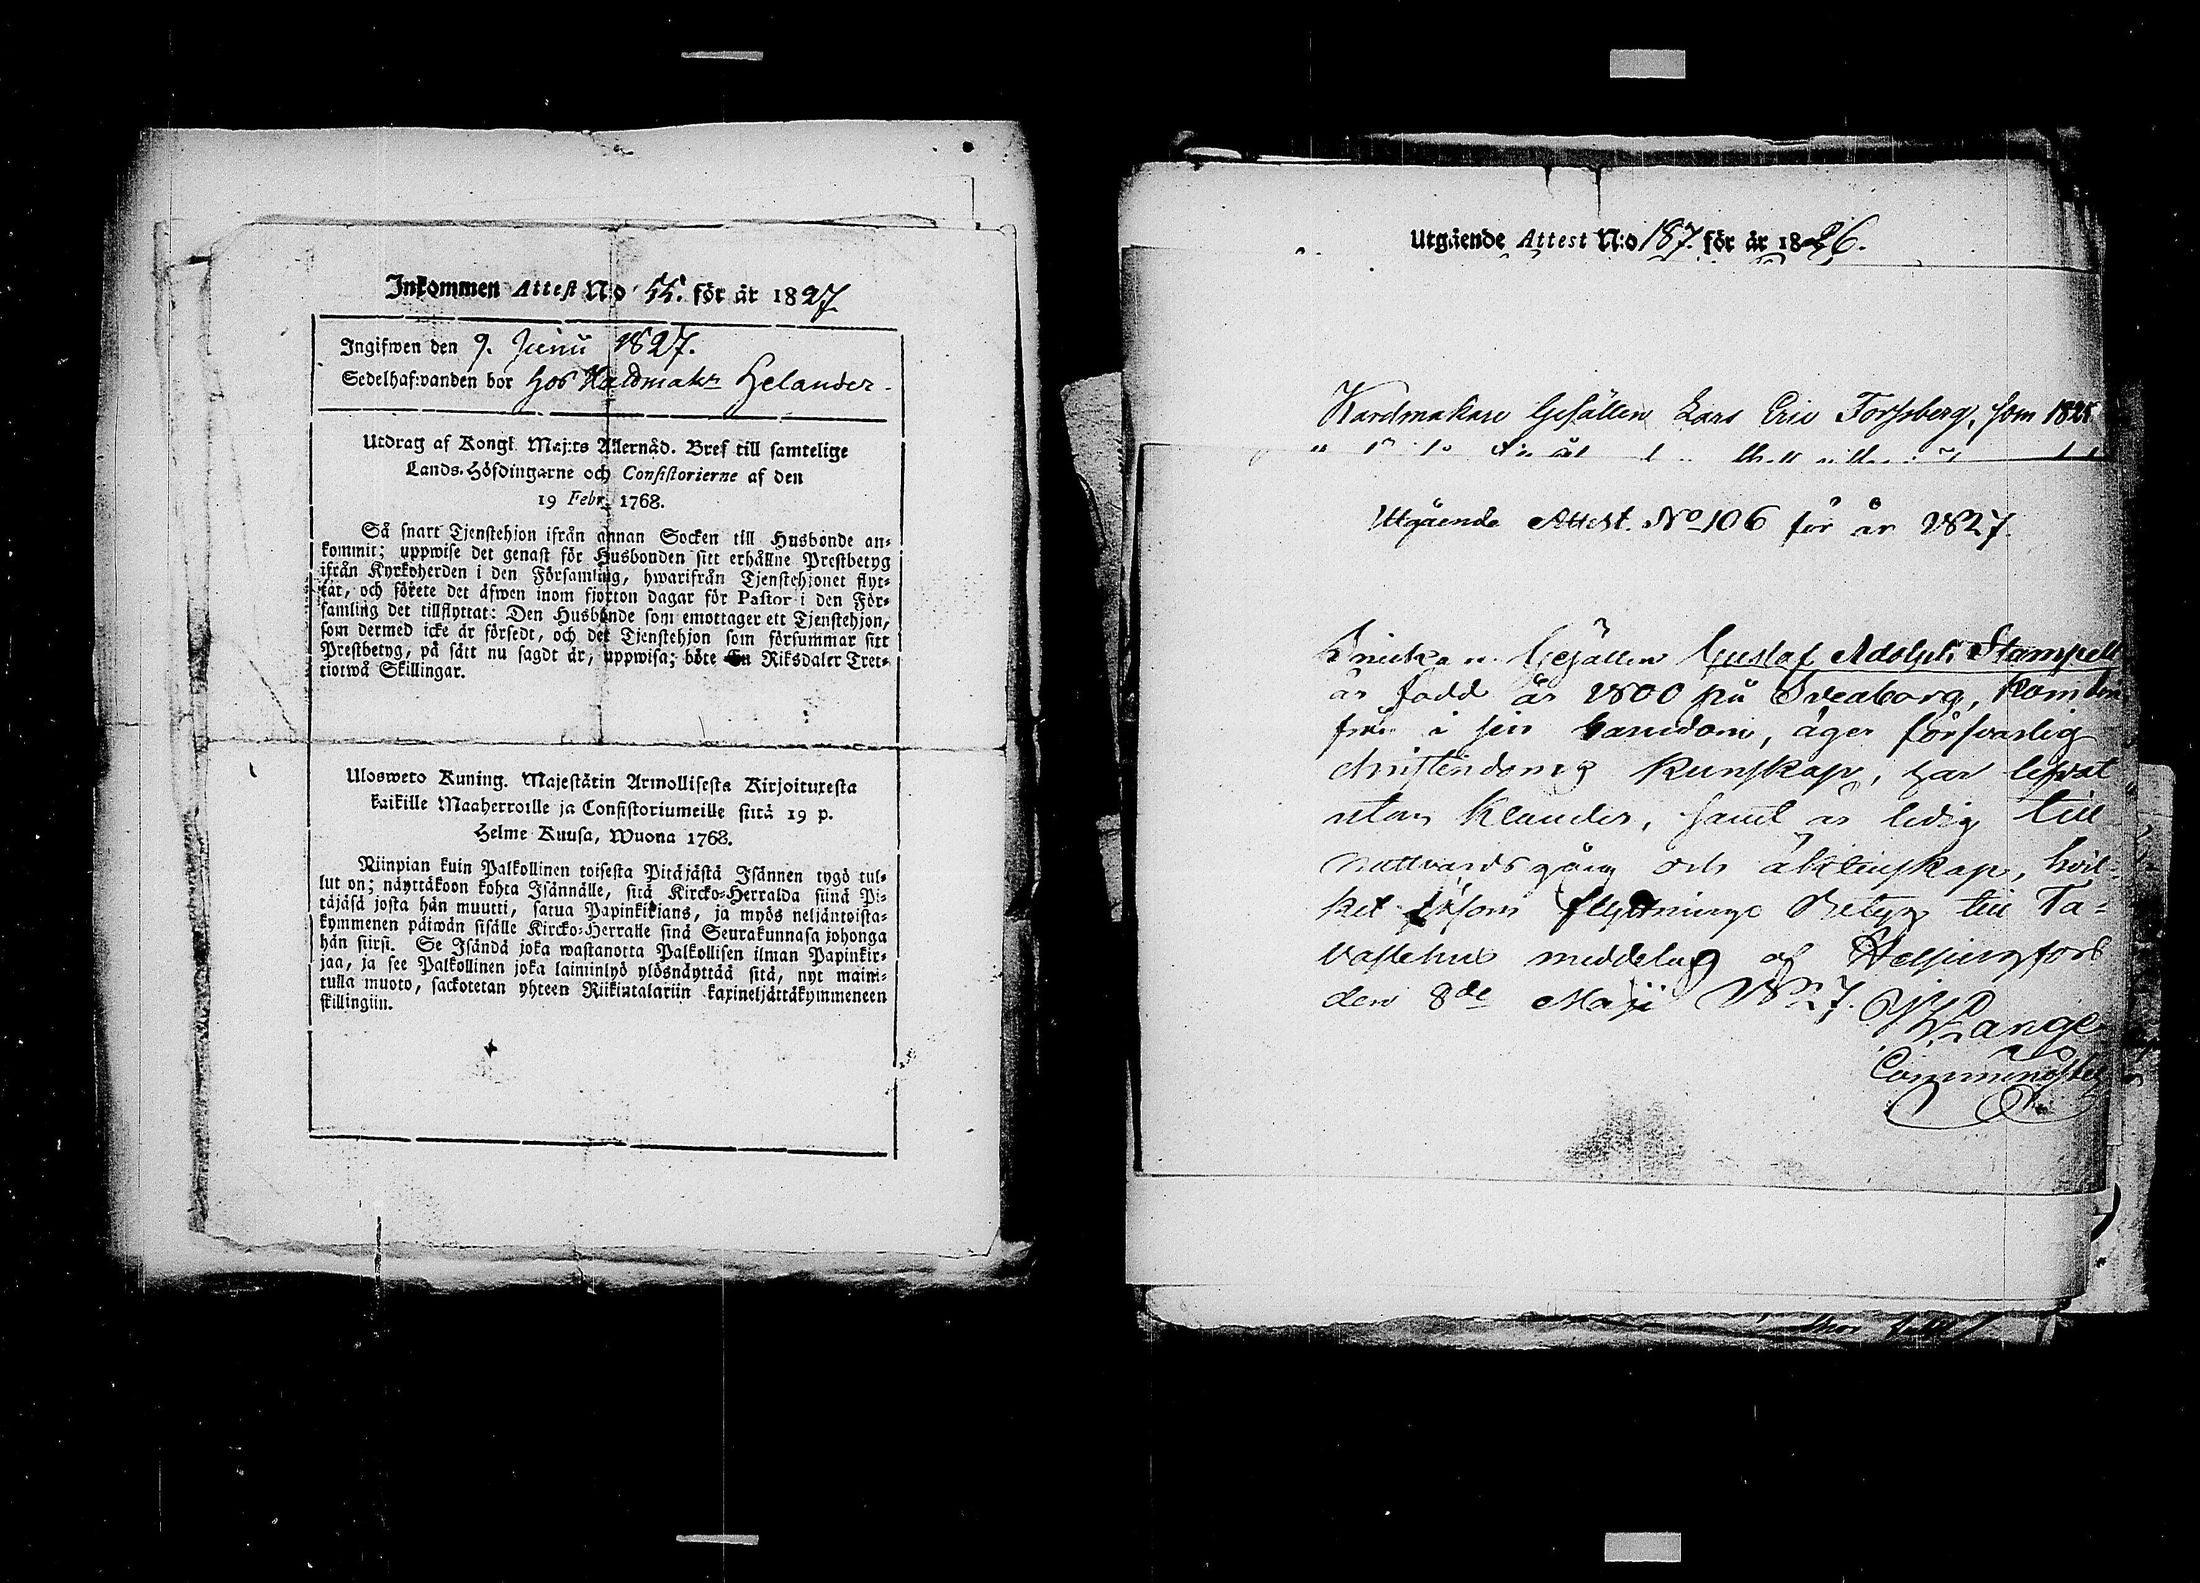 Inkommen Attest N:o 55. för år 1827
Ingifwen den 9. Junii 1827.
Sedelhafwanden bor hos Kardmakr Helander.
Utdrag af Kongl. Maj:ts Allernåd. Bref till samtelige
Lands-Höfdingarne och Consistorierne af den
19 Febr. 1768.
Så snart Tjenstehjon ifrån annan Socken till Husbonde an-
kommit; uppwise det genast för Husbonden sitt erhållne Prestbetyg
ifrån Kyrkoherden i den Församling, hwarifrån Tjenstehjonet flyt-
tat, och förete det äfwen inom fjorton dagar för Pastor i den För-
samling det tillflyttat: Den Husbonde som emottager ett Tjenstehjon,
som dermed icke är försedt, och det Tjenstehjon som försummar sitt
Prestbetyg, på sätt nu sagdt är, uppwisa; böte En Riksdaler Tret-
tiotwå Skillingar.
Ulosweto Kuning. Majestätin Armollisesta Kirjoituxesta
kaikille Maaherroille ja Consistoriumeille siitä 19 p.
Helme Kuusa, Wuona 1768.
Niinpian kuin Palkollinen toisesta Pitäjästä Isännen tygö tul-
lut on; näyttäkoon kohta Isännälle, sitä Kircko-Herralda siinä Pi-
täjäsä josta hän muutti, saatua Papinkirjans, ja myös neljäntoista-
kymmenen päiwän sisälle Kircko-Herralle siinä Seurakunnasa johonga
hän siirsi. Se Isändä joka wastanotta Palkollisen ilman Papinkir-
jaa, ja see Palkollinen joka laiminlyö ylösnäyttää sitä, nyt maini-
tulla muoto, sackotetan yhteen Riikintalariin kaxineljättäkymmeneen
skillingiin.
Utgående Attest N:o 187. för år 1826.
Kardmakare Gesällen Lars Eric Forssberg, som 1825
Utgående Attest. No 106 för år 1827.
Gesällen Gustaf Adolph Stampell
är född år 1800 på Sveaborg, kom der
från i sin barndom, äger försvarlig
christendoms kunskap, har lefvat
utan klander, samt är ledig till
nattvardsgång och äktenskap, hvil-
ket såsom flyttnings Betyg till Ta-
vastehus meddelas af Helsingfors
den 8de Maji 1827.
Lange
Comminister